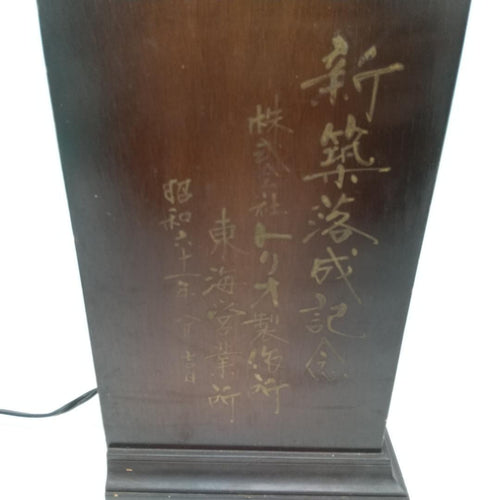 新築落成記念
株式会社トリオ製作所
東海営業所
昭和六十一年八月